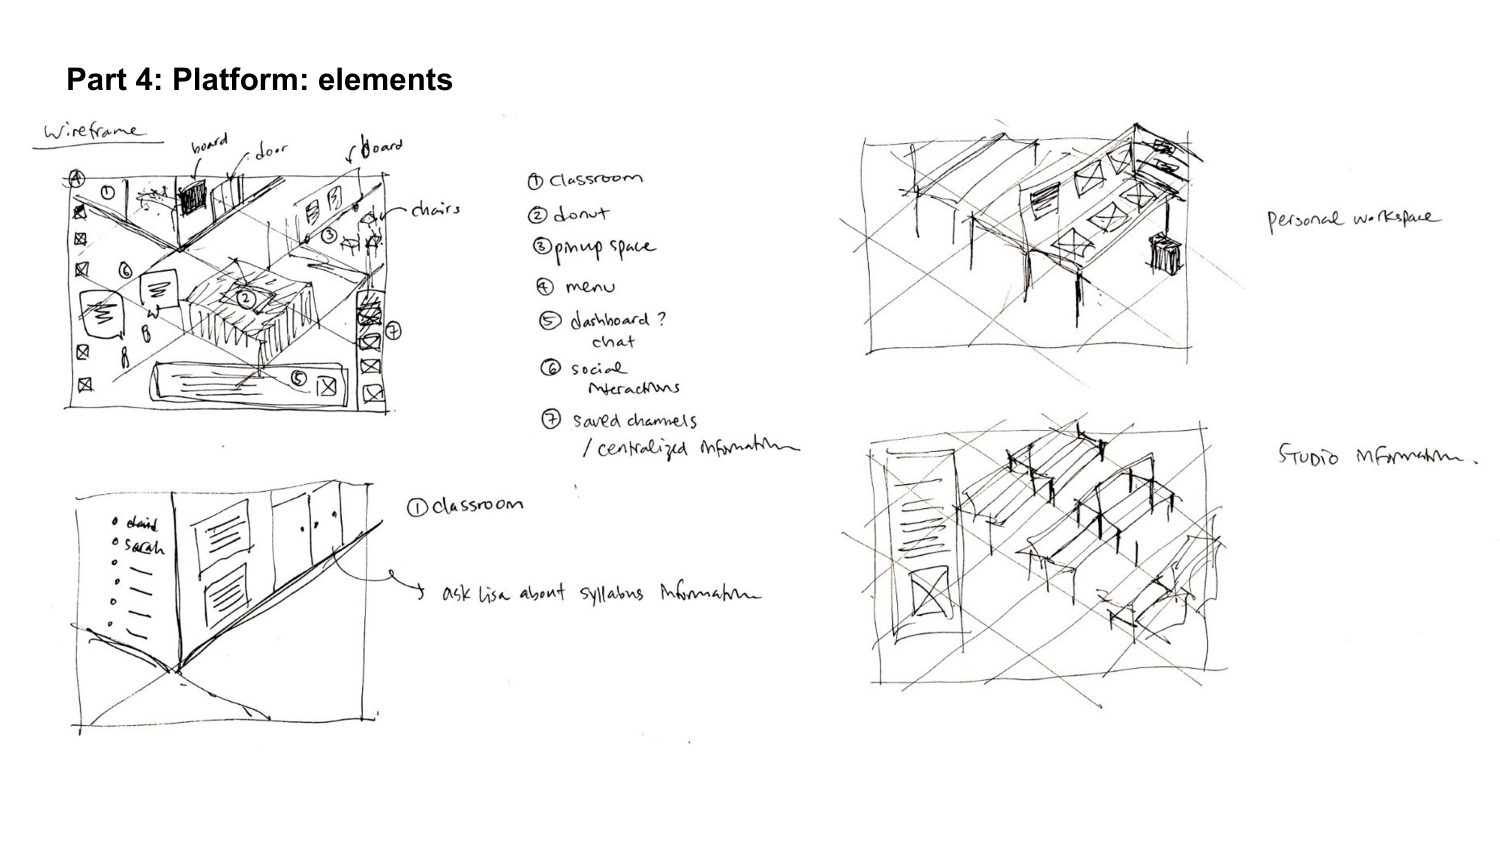 Part 4: Platform: elements
Wireframe
board
door
board
chairs
4
1
3
6
2
7
5
① classroom
② donut
③ pinup space
④ menu
⑤ dashboard?
chat
⑥ social
interactions
⑦ saved channels
/ centralized information
① classroom
david
sarah
ask lisa about syllabus information
personal workspace
STUDIO INFORMATION.